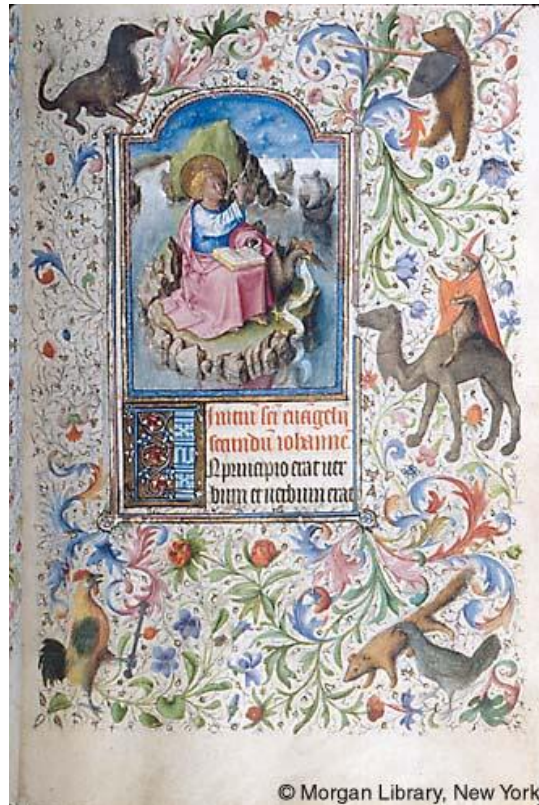 Initiũ sci euãgelij
secundũ iohanne
IN principio erat uer
bum et uerbum erat
© Morgan Library, New York